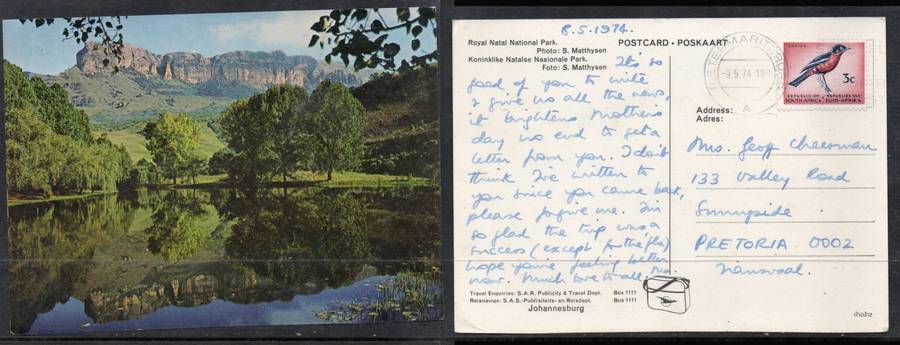 8.5.1974.
Royal Natal National Park.
Photo: S. Matthysen
Koninklike Natalse Nasionale Park.
Foto: S. Matthysen
POSTCARD • POSKAART
It's so
good of you to write
& give us all the news,
it brightens Mothers
day no end to get a
letter from you. I don't
think I've written to
you since you came back,
please forgive me. I'm
so glad the trip was a
success (except for the flu)
hope you're feeling better
now. Much love to all,
Travel Enquiries: S.A.R. Publicity & Travel Dept. Box 1111
Reisnavrae: S.A.S.-Publisiteits- en Reisdept. Bus 1111
Johannesburg
-9.5.74
A
3c
REPUBLIC OF REPUBLIEK VAN
SOUTH AFRICA SUID-AFRIKA
Address:
Adres:
Mrs. Geoff Cheesman
133 Valley Road
Sunnyside
PRETORIA 0002
Transvaal.